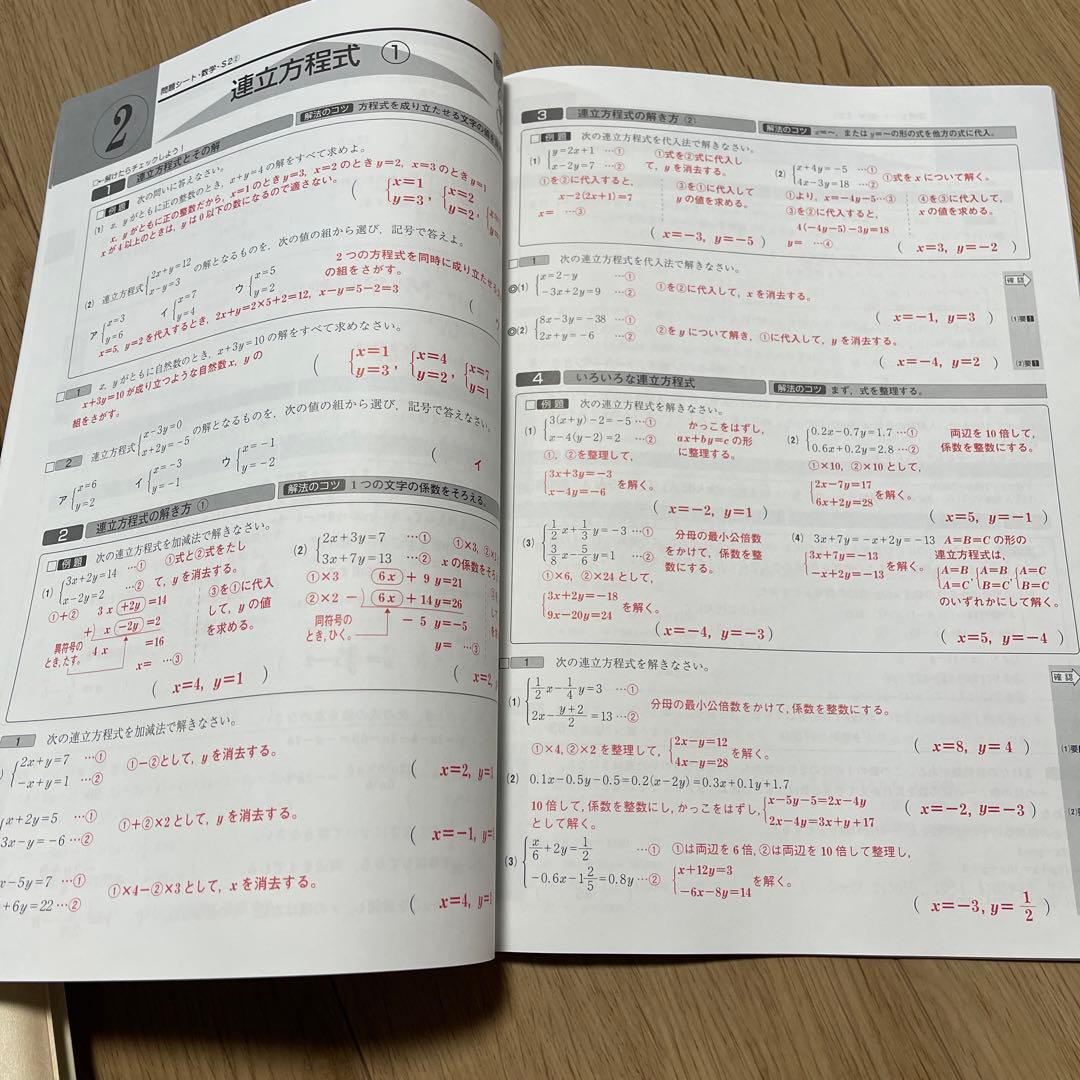 問題シート・数学・S2②
2
連立方程式 ①
□…解けたらチェックしよう！
1 連立方程式とその解
解法のコツ 方程式を成り立たせる文字の値を
□例題 次の問いに答えなさい。
(1) x, yがともに正の整数のとき，x+y=4の解をすべて求めよ。
x, yがともに正の整数だから，x=1のときy=3，x=2のときy=2，x=3のときy=1
xが4以上のときは，yは0以下の数になるので適さない。
( {x=1 y=3, {x=2 y=2,
(2) 連立方程式{2x+y=12 x-y=3 の解となるものを，次の値の組から選び，記号で答えよ。
ア{x=3 y=6 イ{x=7 y=4 ウ{x=5 y=2
2つの方程式を同時に成り立たせる
の組をさがす。
x=5, y=2を代入するとき，2x+y=2×5+2=12，x-y=5-2=3
( ウ
□1 x, yがともに自然数のとき，x+3y=10の解をすべて求めなさい。
x+3y=10が成り立つような自然数x, yの
組をさがす。
( {x=1 y=3, {x=4 y=2, {x=7 y=1
□2 連立方程式{x-3y=0 x+2y=-5 の解となるものを，次の値の組から選び，記号で答えなさい。
ア{x=6 y=2 イ{x=-3 y=-1 ウ{x=-1 y=-2
( イ
2 連立方程式の解き方 ①
解法のコツ 1つの文字の係数をそろえる。
□例題 次の連立方程式を加減法で解きなさい。
(1) {3x+2y=14 …① x-2y=2 …②
①式と②式をたし
て，yを消去する。
①+② 3x+2y=14
+) x-2y=2
4x =16
x= …③
異符号の
とき，たす。
③を①に代入
して，yの値
を求める。
( x=4, y=1 )
(2) {2x+3y=7 …① 3x+7y=13 …②
①×3，②×
xの係数をそろ
①×3 6x+9y=21
②×2 -) 6x+14y=26
-5y=-5
y= …③
同符号の
とき，ひく。
( x=2,
1 次の連立方程式を加減法で解きなさい。
{2x+y=7 …① -x+y=1 …②
①-②として，yを消去する。
( x=2, y=
{x+2y=5 …① 3x-y=-6 …②
①+②×2として，yを消去する。
( x=-1, y=
x-5y=7 …① +6y=22 …②
①×4-②×3として，xを消去する。
( x=4, y=
3 連立方程式の解き方 (2)
解法のコツ x=～，またはy=～の形の式を他方の式に代入。
□例題 次の連立方程式を代入法で解きなさい。
(1) {y=2x+1 …① x-2y=7 …②
①式を②式に代入し
て，yを消去する。
①を②に代入すると，
x-2(2x+1)=7
x= …③
③を①に代入して
yの値を求める。
( x=-3, y=-5 )
(2) {x+4y=-5 …① 4x-3y=18 …②
①式をxについて解く。
①より，x=-4y-5…③
③を②に代入すると，
4(-4y-5)-3y=18
y= …④
④を③に代入して，
xの値を求める。
( x=3, y=-2 )
□1 次の連立方程式を代入法で解きなさい。
◎(1) {x=2-y …① -3x+2y=9 …②
①を②に代入して，xを消去する。
( x=-1, y=3 )
◎(2) {8x-3y=-38 …① 2x+y=-6 …②
②をyについて解き，①に代入して，yを消去する。
( x=-4, y=2 )
確認
(1)要1
(2)要1
4 いろいろな連立方程式
解法のコツ まず，式を整理する。
□例題 次の連立方程式を解きなさい。
(1) {3(x+y)-2=-5 …① x-4(y-2)=2 …②
かっこをはずし，
ax+by=cの形
に整理する。
①，②を整理して，
{3x+3y=-3 x-4y=-6 を解く。
( x=-2, y=1 )
(2) {0.2x-0.7y=1.7 …① 0.6x+0.2y=2.8 …②
両辺を10倍して，
係数を整数にする。
①×10，②×10として，
{2x-7y=17 6x+2y=28 を解く。
( x=5, y=-1 )
(3) {1/2x+1/3y=-3 …① 3/8x-5/6y=1 …②
分母の最小公倍数
をかけて，係数を整
数にする。
①×6，②×24として，
{3x+2y=-18 9x-20y=24 を解く。
( x=-4, y=-3 )
(4) 3x+7y=-x+2y=-13
A=B=Cの形の
連立方程式は，
{3x+7y=-13 -x+2y=-13 を解く。
{A=B A=C, {A=B B=C, {A=C B=C
のいずれかにして解く。
( x=5, y=-4 )
□1 次の連立方程式を解きなさい。
(1) {1/2x-1/4y=3 …① 2x-(y+2)/2=13 …②
分母の最小公倍数をかけて，係数を整数にする。
①×4，②×2を整理して，{2x-y=12 4x-y=28 を解く。
( x=8, y=4 )
(2) 0.1x-0.5y-0.5=0.2(x-2y)=0.3x+0.1y+1.7
10倍して，係数を整数にし，かっこをはずし，{x-5y-5=2x-4y 2x-4y=3x+y+17
として解く。
( x=-2, y=-3 )
(3) {x/6+2y=1/2 …① -0.6x-1 2/5=0.8y …②
①は両辺を6倍，②は両辺を10倍して整理し，
{x+12y=3 -6x-8y=14 を解く。
( x=-3, y=1/2 )
確認
(1)要
(2)要